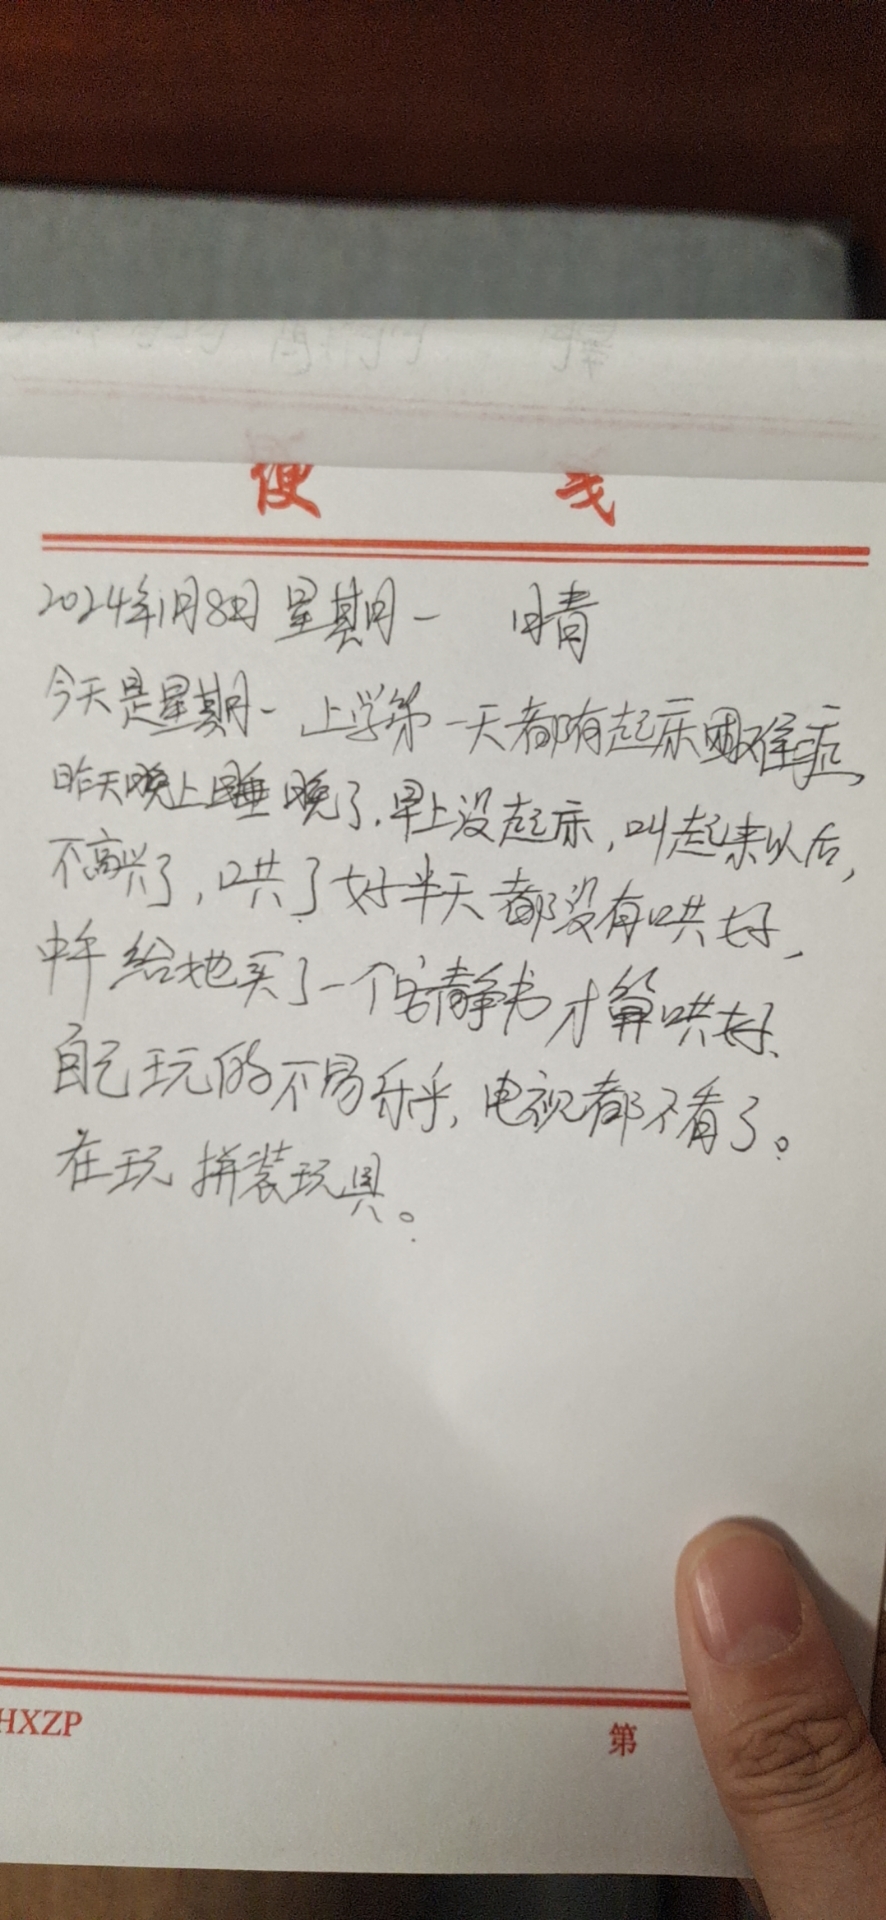 便 笺
2024年1月8日 星期一 晴
今天是星期一 上学第一天都有起床困难症,
昨天晚上睡晚了,早上没起床,叫起来以后,
不高兴了,哄了好半天都没有哄好,
中午给她买了一个安静书才算哄好、
自己玩的不易乐乎,电视都不看了。
在玩拼装玩具。
HXZP 第